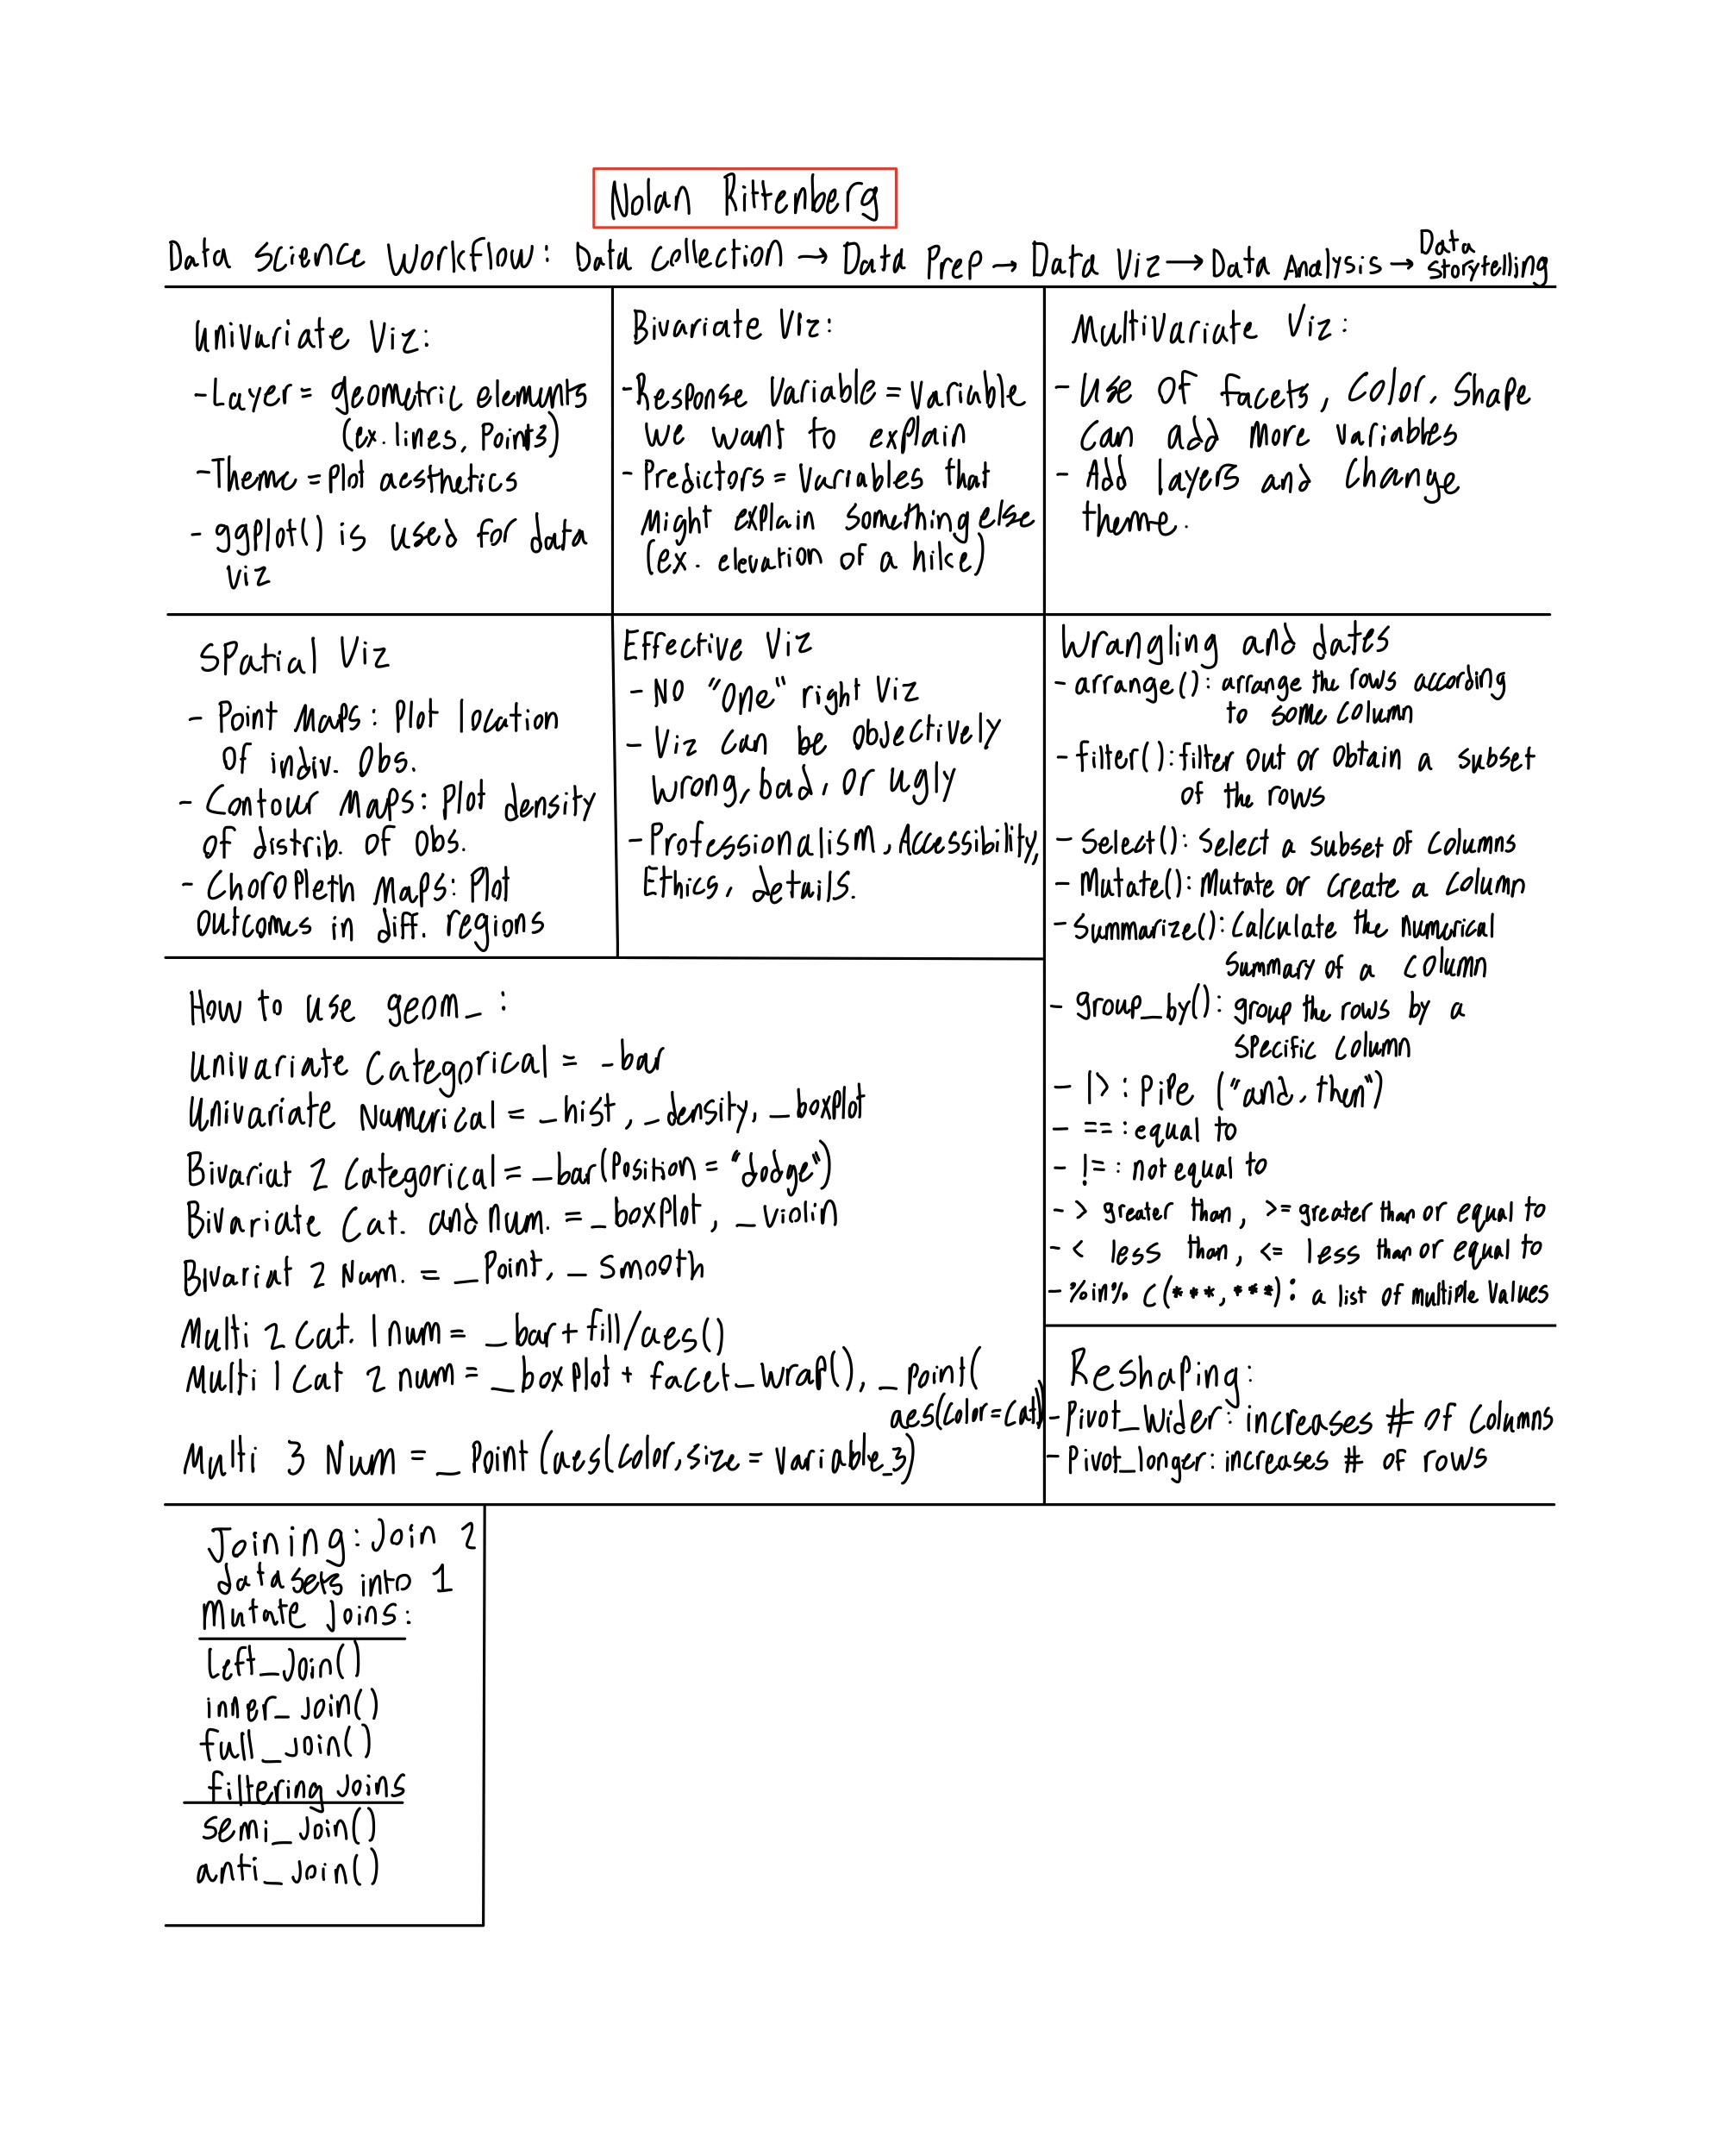 Nolan Rittenberg
Data Science Workflow: Data Collection → Data Prep → Data Viz → Data Analysis → Data Storytelling
Univariate Viz:
- Layer = geometric elements
(ex. lines, Points)
- Theme = Plot aesthetics
- ggplot() is used for data
viz
Bivariate Viz:
- Response Variable = Variable
we want to explain
- Predictors = Variables that
Might explain something else
(ex. elevation of a hike)
Multivariate Viz:
- Use of facets, Color, Shape
can add more variables
- Add layers and Change
theme.
Spatial Viz
- Point Maps: Plot location
Of indiv. Obs.
- Contour Maps: Plot density
of distrib. of Obs.
- Choropleth Maps: Plot
Outcomes in diff. regions
Effective Viz
- No "One" right Viz
- Viz can be objectively
wrong, bad, or ugly
- Professionalism, Accessibility,
Ethics, details.
Wrangling and dates
- arrange(): arrange the rows according
to some column
- filter(): filter out or obtain a subset
of the rows
- Select(): Select a subset of columns
- Mutate(): Mutate or create a column
- Summarize(): Calculate the numerical
Summary of a column
- group_by(): group the rows by a
specific column
- |> : Pipe ("and, then")
- == : equal to
- != : not equal to
- > greater than, >= greater than or equal to
- < less than, <= less than or equal to
- %in% c(***, ***): a list of multiple values
How to use geom_ :
Univariate Categorical = _bar
Univariate Numerical = _hist, _density, _boxplot
Bivariat 2 Categorical = _bar(Position = "dodge")
Bivariate Cat. and Num. = _boxplot, _violin
Bivariat 2 Num. = _Point, _smooth
Multi 2 Cat. 1 num = _bar + fill/aes()
Multi 1 Cat 2 num = _boxplot + facet_wrap(), _point(
aes(color=Cat))
Multi 3 Num = _Point (aes(color, size = Variable_3)
Reshaping:
- Pivot_wider: increases # of columns
- Pivot_longer: increases # of rows
Joining: Join 2
datasets into 1
Mutate Joins:
left_join()
inner_join()
full_join()
filtering joins
semi_join()
anti_join()